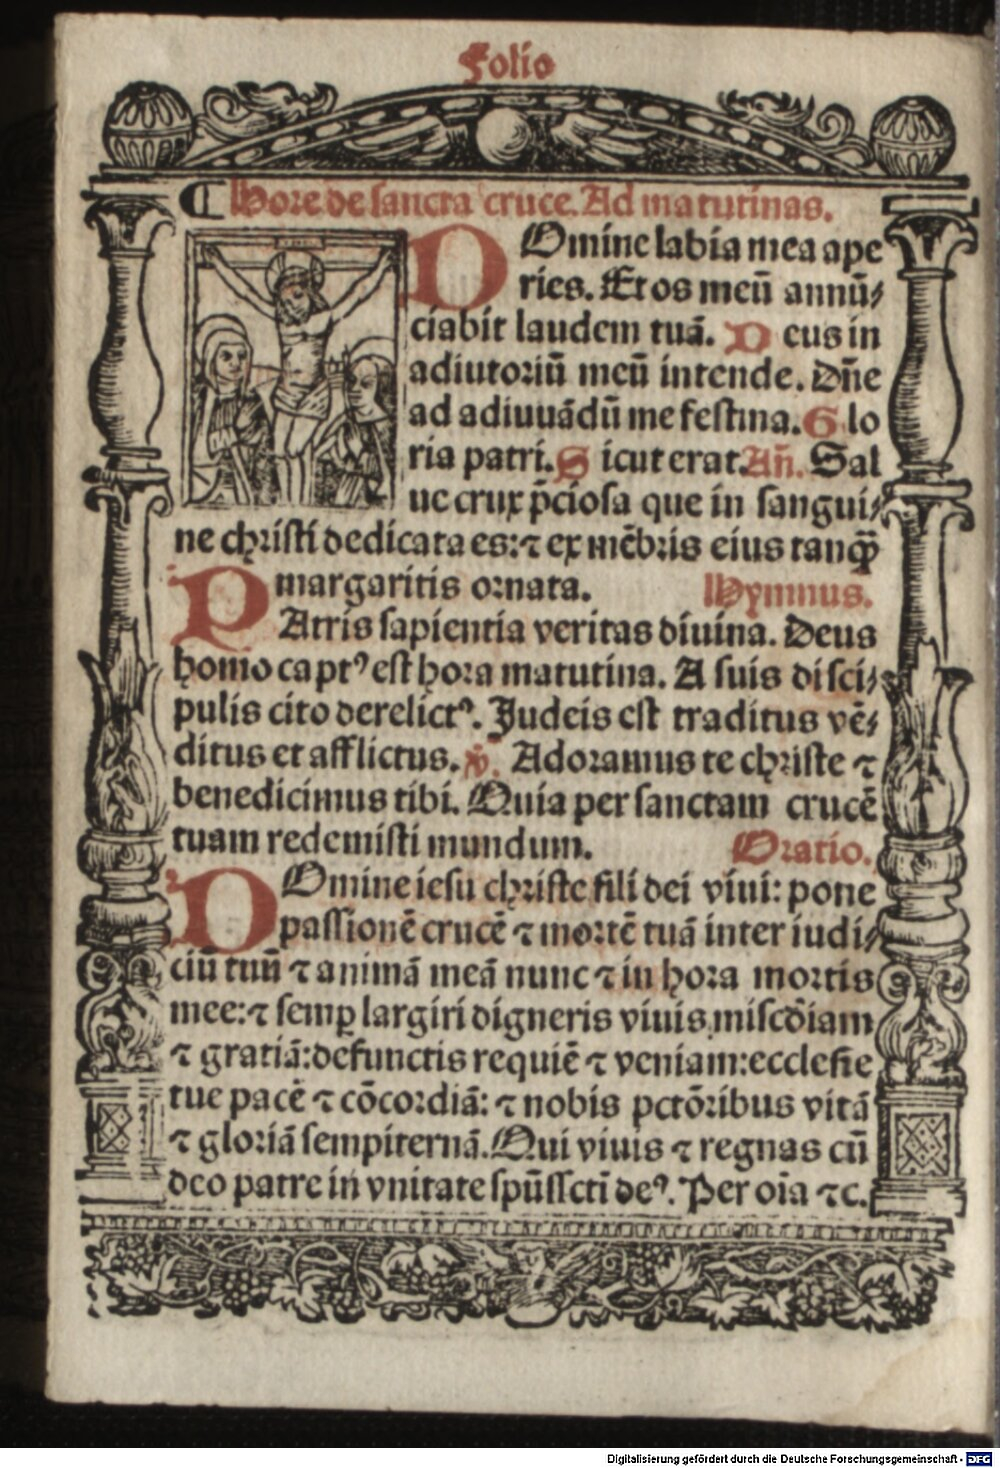 Folio
¶ Hore de sancta cruce. Ad matutinas.
DOmine labia mea ape
ries. Et os meū annū⸗
ciabit laudem tuā. Deus in
adiutoriū meū intende. Dn̄e
ad adiuuādū me festina. Glo
ria patri. Sicut erat. An̄. Sal
ue crux p̄ciosa que in sangui⸗
ne christi dedicata es: ⁊ ex mēbris eius tanqꝫ
margaritis ornata. Hymnus.
PAtris sapientia veritas diuina. Deus
homo captꝰ est hora matutina. A suis disci⸗
pulis cito derelictꝰ. Judeis est traditus vē⸗
ditus et afflictus. ℣. Adoramus te christe ⁊
benedicimus tibi. Quia per sanctam crucē
tuam redemisti mundum. Oratio.
DOmine iesu christe fili dei viui: pone
passionē crucē ⁊ mortē tuā inter iudi⸗
ciū tuū ⁊ animā meā nunc ⁊ in hora mortis
mee: ⁊ semꝑ largiri digneris viuis miscōiam
⁊ gratiā: defunctis requiē ⁊ veniam: ecclesie
tue pacē ⁊ cōcordiā: ⁊ nobis pctōribus vitā
⁊ gloriā sempiternā. Qui viuis ⁊ regnas cū
deo patre in vnitate spūssctī deꝰ. Per oīa ⁊c.
Digitalisierung gefördert durch die Deutsche Forschungsgemeinschaft - DFG